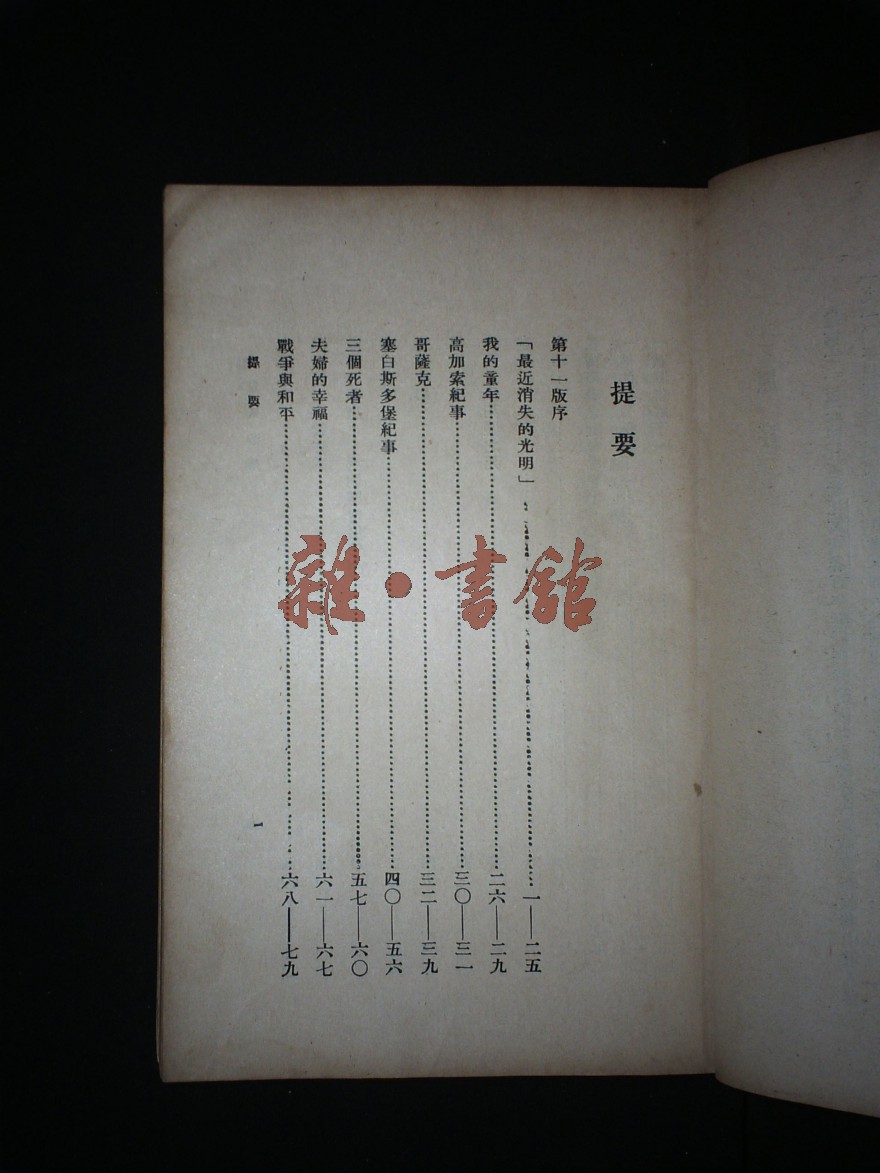 提要
第十一版序
「最近消失的光明」……一——二五
我的童年……二六——二九
高加索紀事……三〇——三一
哥薩克……三二——三九
塞白斯多堡紀事……四〇——五六
三個死者……五七——六〇
夫婦的幸福……六一——六七
戰爭與和平……六八——七九
提要
1
雜·書館